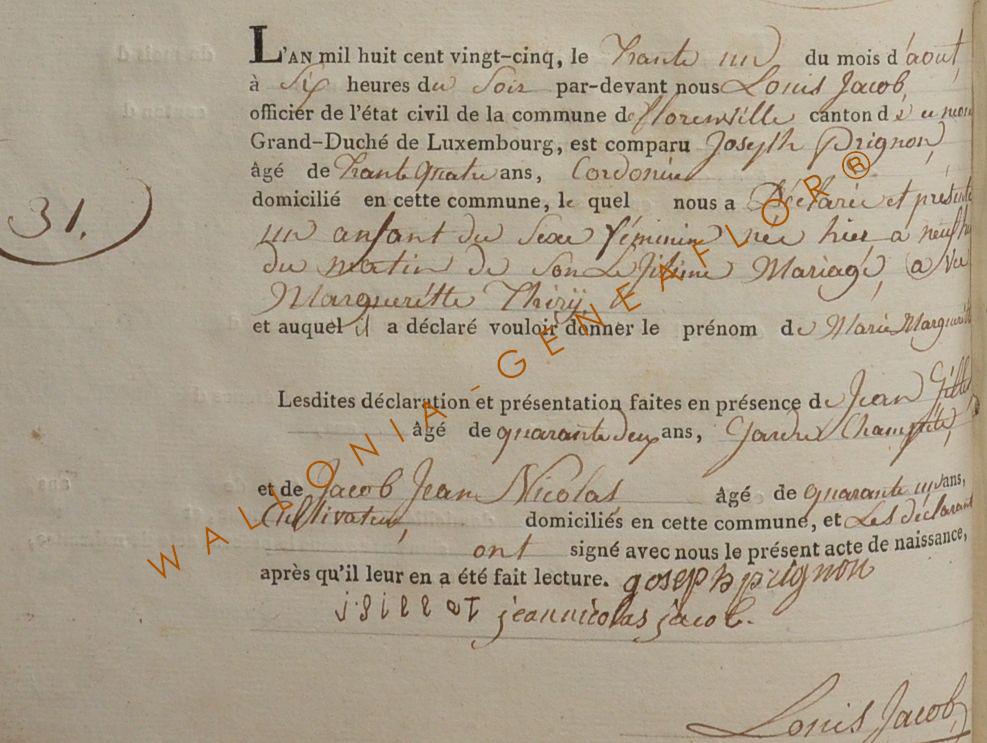 L'AN mil huit cent vingt-cinq, le trante un du mois d'août,
à Six heures du Soir par-devant nous Louis Jacob,
officier de l'état civil de la commune de florenville canton d
Grand-Duché de Luxembourg, est comparu Joseph Prignon,
âgé de trante quatre ans, Cordonier
31.
domicilié en cette commune, le quel nous a Déclarée et présenté
un anfant du Sexe féminin née hier a neuf h
du matin de Son Lejitime Mariage, avec
Margueritte Thirÿ
et auquel il a déclaré vouloir donner le prénom de Marie Marguerite
Lesdites déclaration et présentation faites en présence de Jean Gillet
âgé de quarante deux ans, Garde Champête,
et de Jacob Jean Nicolas âgé de quarante un ans,
Cultivateur, domiciliés en cette commune, et Les déclarant
ont signé avec nous le présent acte de naissance,
après qu'il leur en a été fait lecture. gosephprignon
jgillet jeannicolas jacob.
Louis Jacob,
WALLONIA - GENEAFLOR®